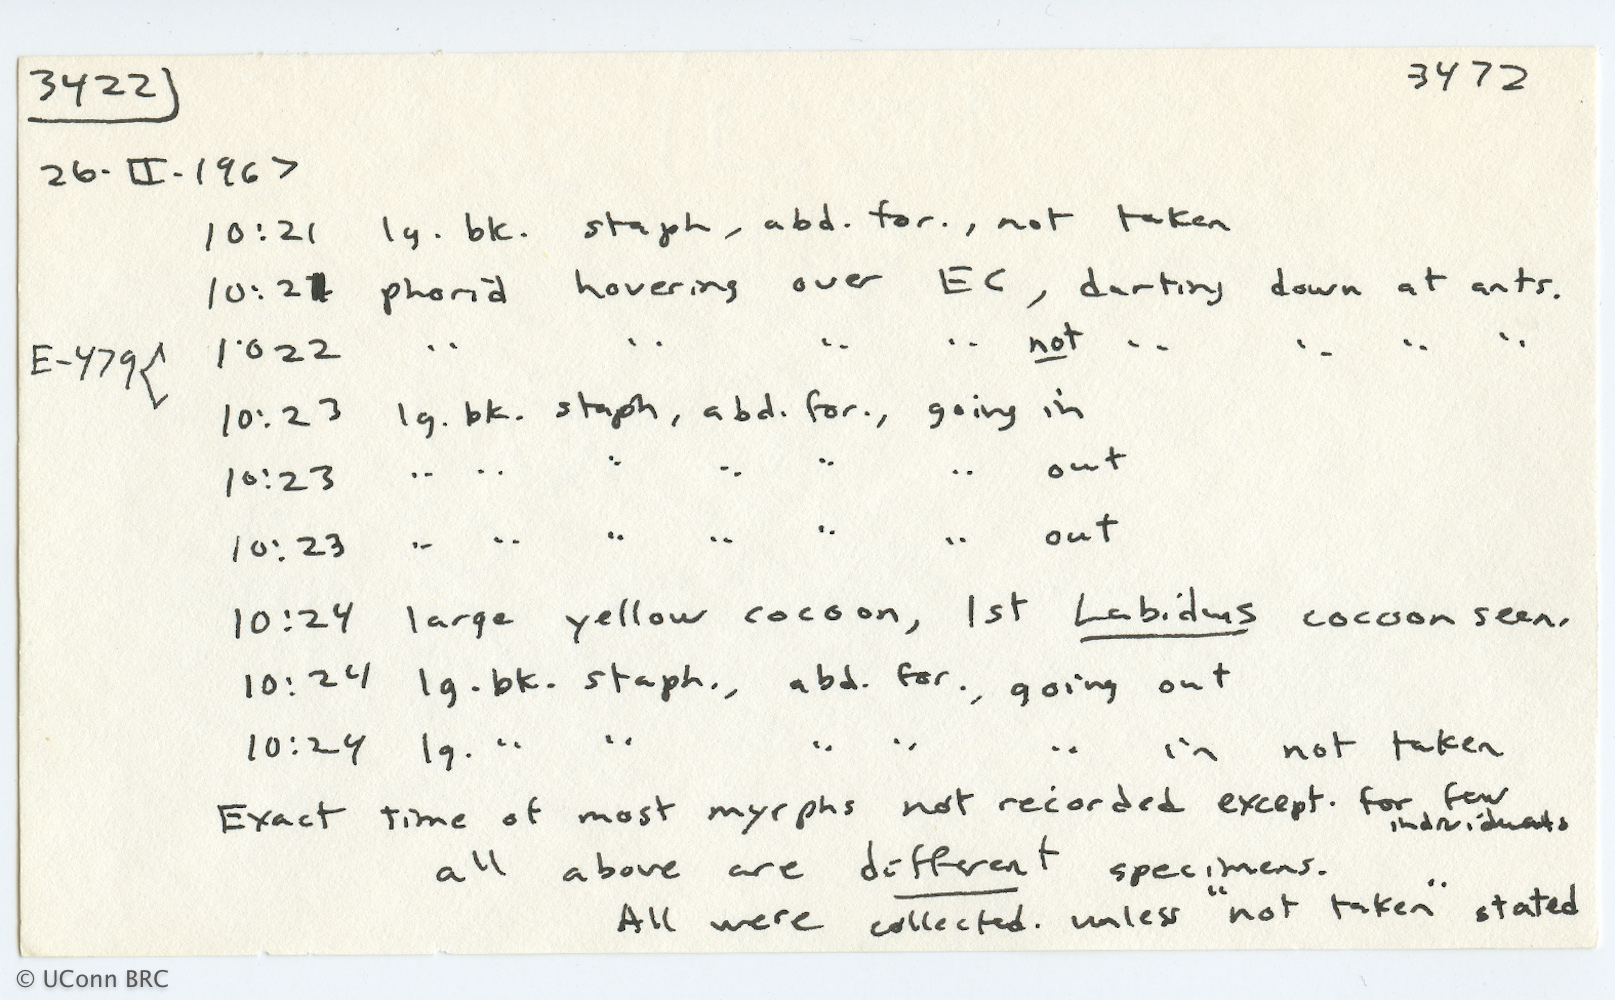 3422 3472
26-II-1967
10:21 lg. bk. staph, abd. for., not taken
10:21 phorid hovering over EC, darting down at ants.
E-479{ 1022 " " " " not " " " " "
10:23 lg. bk. staph, abd. for., going in
10:23 " " " " " " out
10:23 " " " " " " out
10:24 large yellow cocoon, 1st Labidus cocoon seen.
10:24 lg. bk. staph., abd. for., going out
10:24 lg. " " " " " in not taken
Exact time of most myrphs not recorded except. for few individuals
all above are different specimens.
All were collected. unless "not taken" stated
© UConn BRC